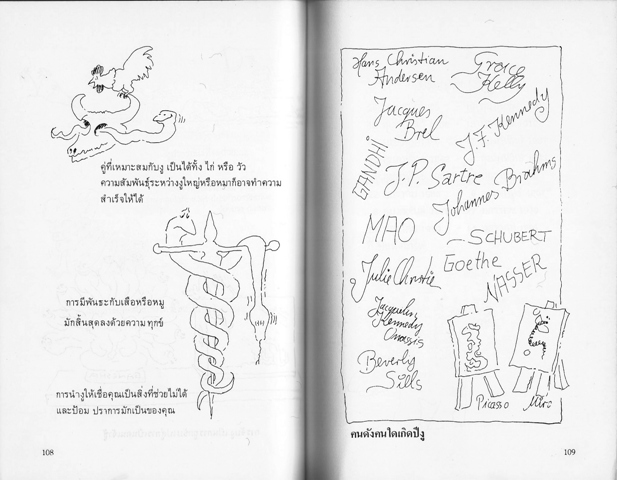 คู่ที่เหมาะสมกับงู เป็นได้ทั้ง ไก่ หรือ วัว
ความสัมพันธุ์ระหว่างงูใหญ่หรือหมาก็อาจทำความ
สำเร็จให้ได้
การมีพันธะกับเสือหรือหมู
มักสิ้นสุดลงด้วยความ ทุกข์
การนำงูให้เชื่อคุณเป็นสิ่งที่ช่วยไม่ได้
และป้อม ปราการมักเป็นของคุณ
108
Hans Christian
Andersen
Grace
Kelly
Jacques
Brel
J.F. Kennedy
GANDHI
J.P. Sartre
Johannes Brahms
MAO
SCHUBERT
Julie Christie
Goethe
NASSER
Jacqueline
Kennedy
Onassis
Beverly
Sills
Picasso
Miró
คนดังคนใดเกิดปีงู
109